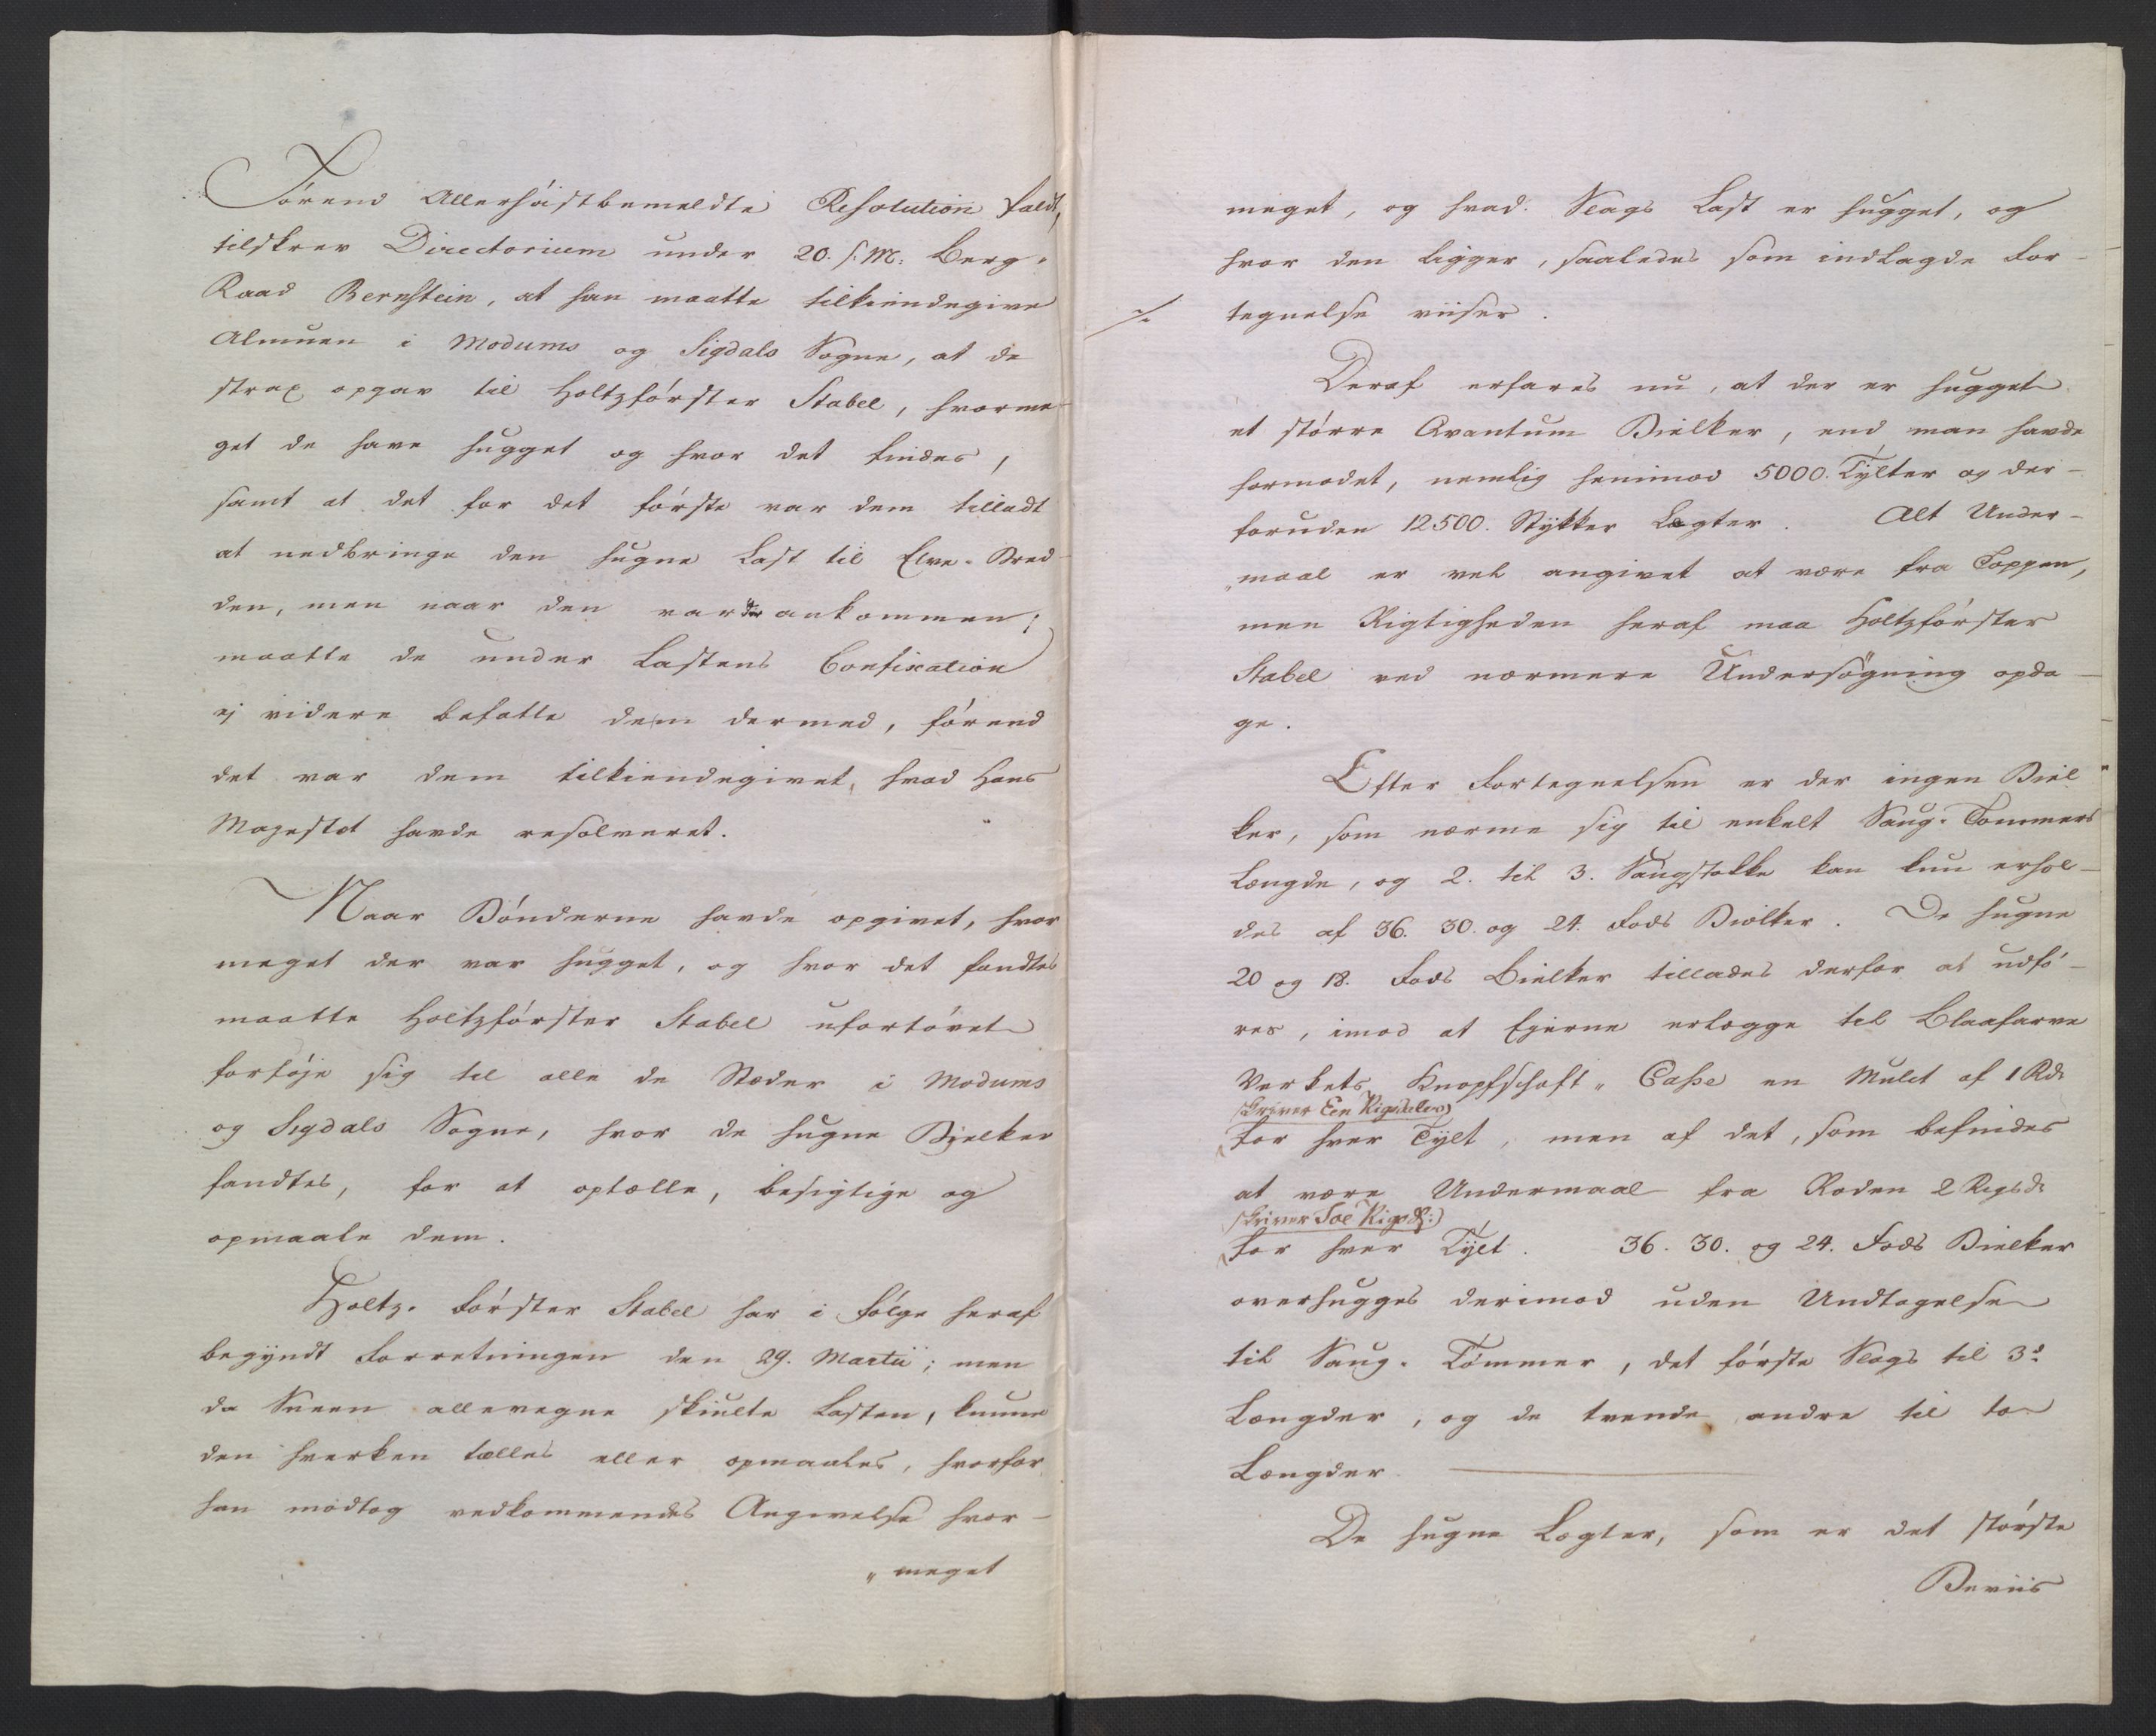 Förend Allerhöistbemeldte Resolution faldt,
tilskrev Directorium under 20. s: M: Berg-
Raad Bernstein, at han maatte tilkiendegive
Almuen i Modums og Sigdals Sogne, at de
strax opgav til Holtzförster Stabel, hvorme-
get de have hugget og hvor det findes,
samt at det for det förste var dem tilladt
at nedbringe den hugne Last til Elve-Bred-
den, men naar den var der ankommen,
maatte de under Lastens Confiscation
ej videre befatte dem dermed, förend
det var dem tilkiendegivet, hvad Hans
Majestæt havde resolveret.
Naar Bönderne havde opgivet, hvor
meget der var hugget, og hvor det fandtes
maatte Holtzförster Stabel ufortövet
forföje sig til alle de Stæder i Modums
og Sigdals Sogne, hvor de hugne Bjelker
fandtes, for at optælle, besigtige og
opmaale dem.
Holtz-Förster Stabel har i fölge heraf
begyndt Forretningen den 29. Martii; men
da Sneen allevegne skiulte Lasten, kunne
den hverken tælles eller opmaales, hvorfor
han modtog vedkommendes Angivelse hvor-
"meget
meget, og hvad Slags Last er hugget, og
hvor den ligger, saaledes som indlagde For-
⁒ tegnelse viiser.
Deraf erfares nu, at der er hugget
et större Qvantum Bielker, end man havde
formodet, nemlig henimod 5000. Tylter og der-
foruden 12500. Stykker Lægter. Alt Under-
"maal er vel angivet at være fra Toppen,
men Rigtigheden heraf maa Holtzförster
Stabel ved nærmere Undersögning opda-
ge.
Efter Fortegnelsen er der ingen Biel-
ker, som nærme sig til enkelt Saug-Tömmers
Længde, og 2. til 3. Saugstokke kan kun erhol-
des af 36. 30. og 24. Fods Bielker. De hugne
20 og 18. Fods Bielker tillades derfor at udfö-
res, imod at Ejerne erlægge til Blaafarve
Verkets Knapfschaft-Casse en Mulct af 1 Rd.
skriver Een Rigsdaler)
for hver Tylt, men af det, som befindes
at være Undermaal fra Roden 2 Rigsd.
skriver Toe Rigsd:)
for hver Tylt. 36. 30. og 24. Fods Bielker
overhugges derimod uden Undtagelse
til Saug-Tömmer, det förste Slags til 3de
Længder, og de tvende andre til to
Længder.
De hugne Lægter, som er det störste
Beviis